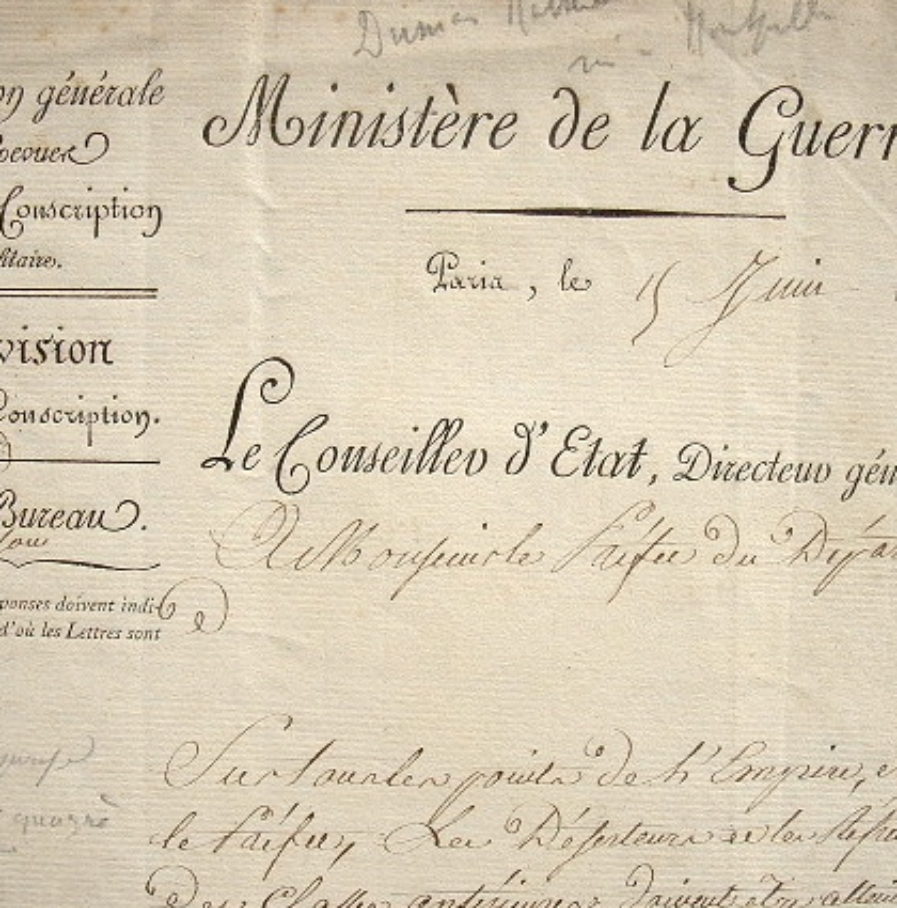 on générale
Revues
Conscription
litaire.
vision
Conscription.
Bureau.
ponses doivent indi-
d'où les Lettres sont
Ministère de la Guerr
Paris, le 15 Juin
Le Conseiller d'Etat, Directeur gén
A Monsieur le Préfet du Dépar
Sur tous les points de l'Empire,
le Préfet, Les Déserteurs et les Réfra
des Classes antérieures doivent être attein